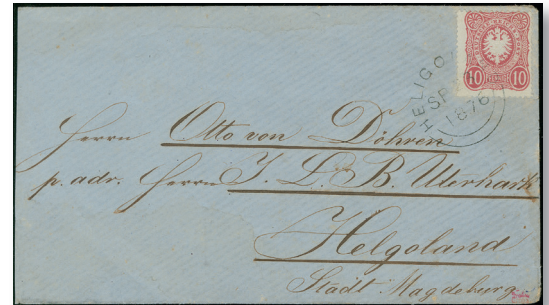 10 10
HELIGO
SP
1876
Herrn Otto von Döhren
p. adr. Herrn J. L. B. Uterhark
Helgoland
Stadt Magdeburg.